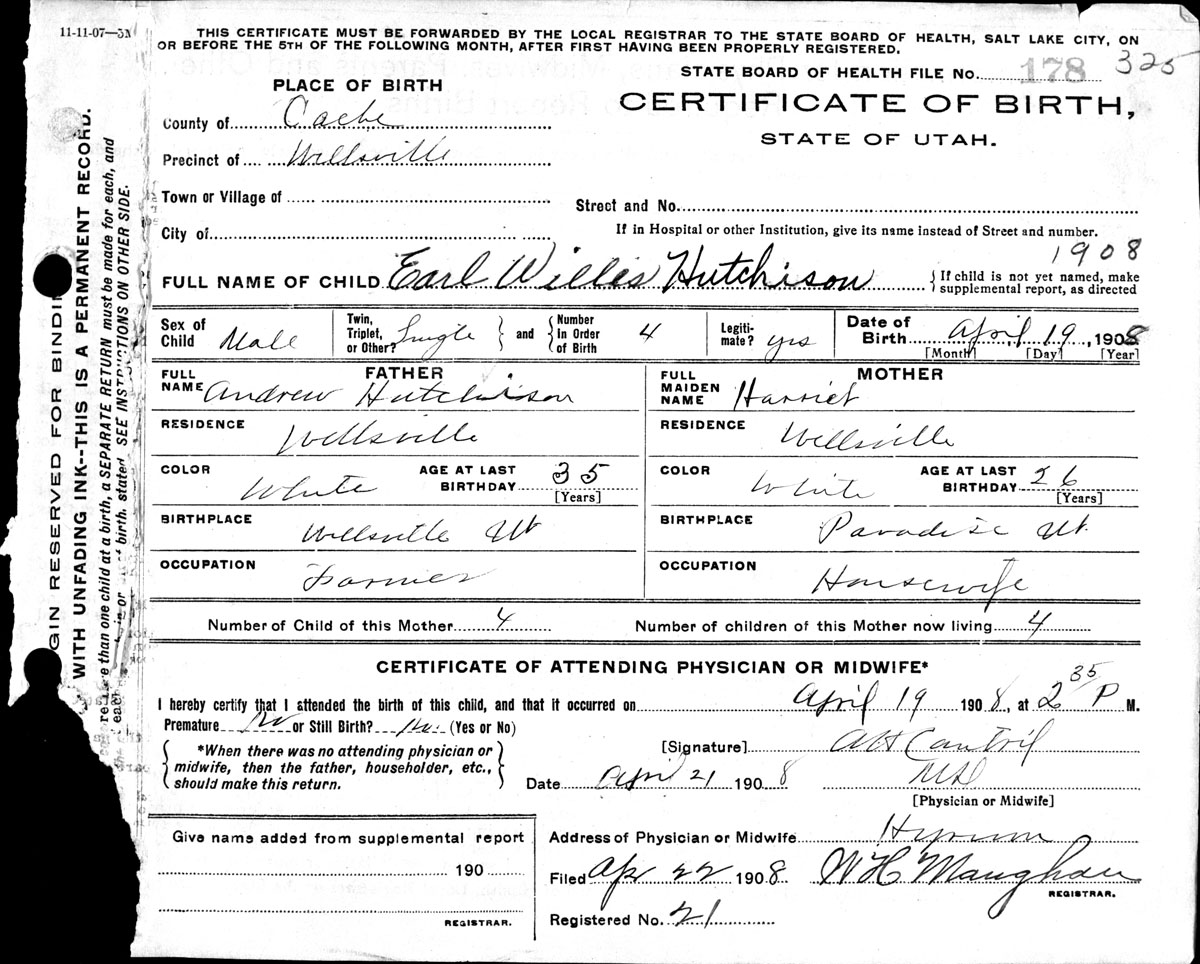 11-11-07—5M
THIS CERTIFICATE MUST BE FORWARDED BY THE LOCAL REGISTRAR TO THE STATE BOARD OF HEALTH, SALT LAKE CITY, ON
OR BEFORE THE 5TH OF THE FOLLOWING MONTH, AFTER FIRST HAVING BEEN PROPERLY REGISTERED.
STATE BOARD OF HEALTH FILE No. 178 325
PLACE OF BIRTH
CERTIFICATE OF BIRTH,
STATE OF UTAH.
County of Cache
Precinct of Wellsville
Town or Village of
Street and No.
City of
If in Hospital or other Institution, give its name instead of Street and number.
1908
FULL NAME OF CHILD Earl Willis Hutchison
If child is not yet named, make
supplemental report, as directed
Sex of Child Male Twin, Triplet, or Other? Single and Number In Order of Birth 4 Legiti- mate? yes Date of Birth April 19, 1908
[Month] [Day] [Year]
FATHER
MOTHER
FULL NAME Andrew Hutchison FULL MAIDEN NAME Harriet
RESIDENCE Wellsville RESIDENCE Wellsville
COLOR White AGE AT LAST BIRTHDAY 35 [Years] COLOR White AGE AT LAST BIRTHDAY 26 [Years]
BIRTHPLACE Wellsville Ut BIRTHPLACE Paradise Ut.
OCCUPATION Farmer OCCUPATION Housewife
Number of Child of this Mother 4 Number of children of this Mother now living 4
CERTIFICATE OF ATTENDING PHYSICIAN OR MIDWIFE*
I hereby certify that I attended the birth of this child, and that it occurred on April 19 1908, at 2 35 P M.
Premature No or Still Birth? No. (Yes or No)
*When there was no attending physician or
midwife, then the father, householder, etc.,
should make this return.
[Signature] AH Cantril
Date April 21 1908 MD
[Physician or Midwife]
Give name added from supplemental report
190
REGISTRAR.
Address of Physician or Midwife Hyrum
Filed Apr 22 1908 W H Maughan
REGISTRAR.
Registered No. 21
GIN RESERVED FOR BINDIN
WITH UNFADING INK--THIS IS A PERMANENT RECORD.
re than one child at a birth, a SEPARATE RETURN must be made for each, and
birth, stated. SEE INSTRUCTIONS ON OTHER SIDE.